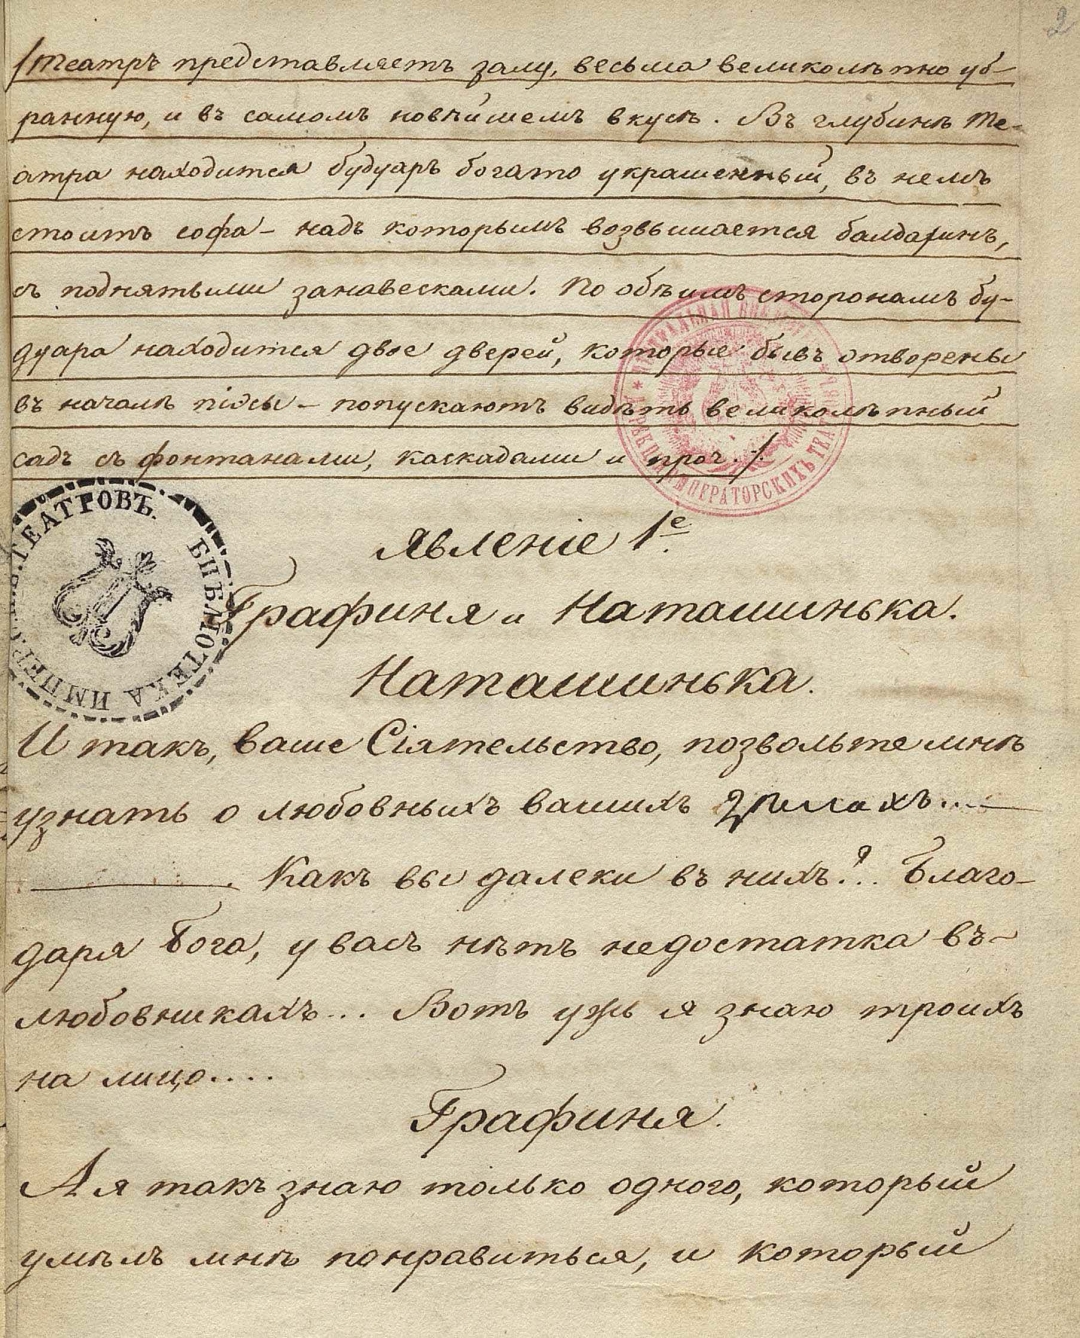 2
/Театръ представляетъ залу, весьма великолѣпно уб-
ранную, и въ самомъ новѣйшемъ вкусѣ. Въ глубинѣ те-
атра находится будуаръ богато украшенный, въ немъ
стоитъ софа - надъ которымъ возвышается балдахинъ,
съ поднятыми занавесками. По обѣимъ сторонамъ бу-
дуара находится двое дверей, которые бывъ отворены
въ началѣ піэсы - попускаютъ видѣть великолѣпный
садъ съ фонтанами, каскадами и проч./.
ЦЕНТРАЛЬНАЯ БИБЛІОТЕКА * ДИРЕКЦІИ ИМПЕРАТОРСКИХЪ ТЕАТРОВЪ *
БИБЛІОТЕКА ИМПЕР. ТЕАТРОВЪ.
Явленіе 1е.
Графиня и Наташинька.
Наташинька.
И такъ, ваше Сіятельство, позвольте мнѣ
узнать о любовныхъ вашихъ дѣлахъ....—
—. Какъ вы далеки въ нихъ?.. Благо-
даря Бога, у васъ нѣтъ недостатка въ-
любовникахъ... Вотъ ужь я знаю троихъ
на лицо....
Графиня.
А я такъ знаю только одного, который
умѣлъ мнѣ понравиться, и который